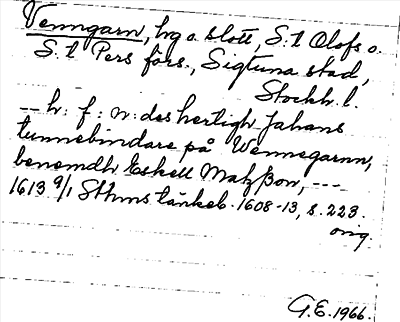 Venngarn, hg o. slott, S:t Olofs o.
S:t Pers förs., Sigtuna stad,
Stockh. l.
-- h: f: n: des hertigh Jahans
tunnebindare på Wennegarnn,
benemdh Eskell Matzßon, ---
1613 9/1 Sthms tänkeb. 1608-13, s. 223.
orig.
G.E. 1966.